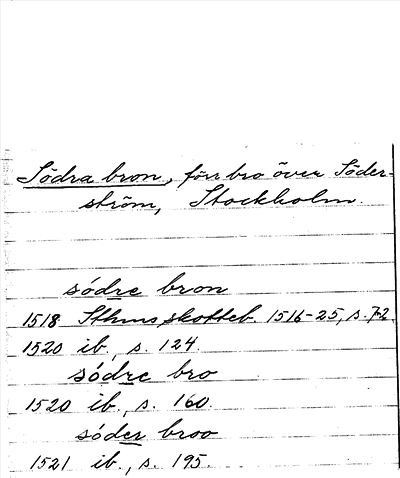 Södra bron, förr bro över Söder-
ström, Stockholm.
södre bron
1518 Sthms skotteb. 1516-25, s. 72.
1520 ib., s. 124.
södre bro
1520 ib., s. 160.
söder broo
1521 ib., s. 195.